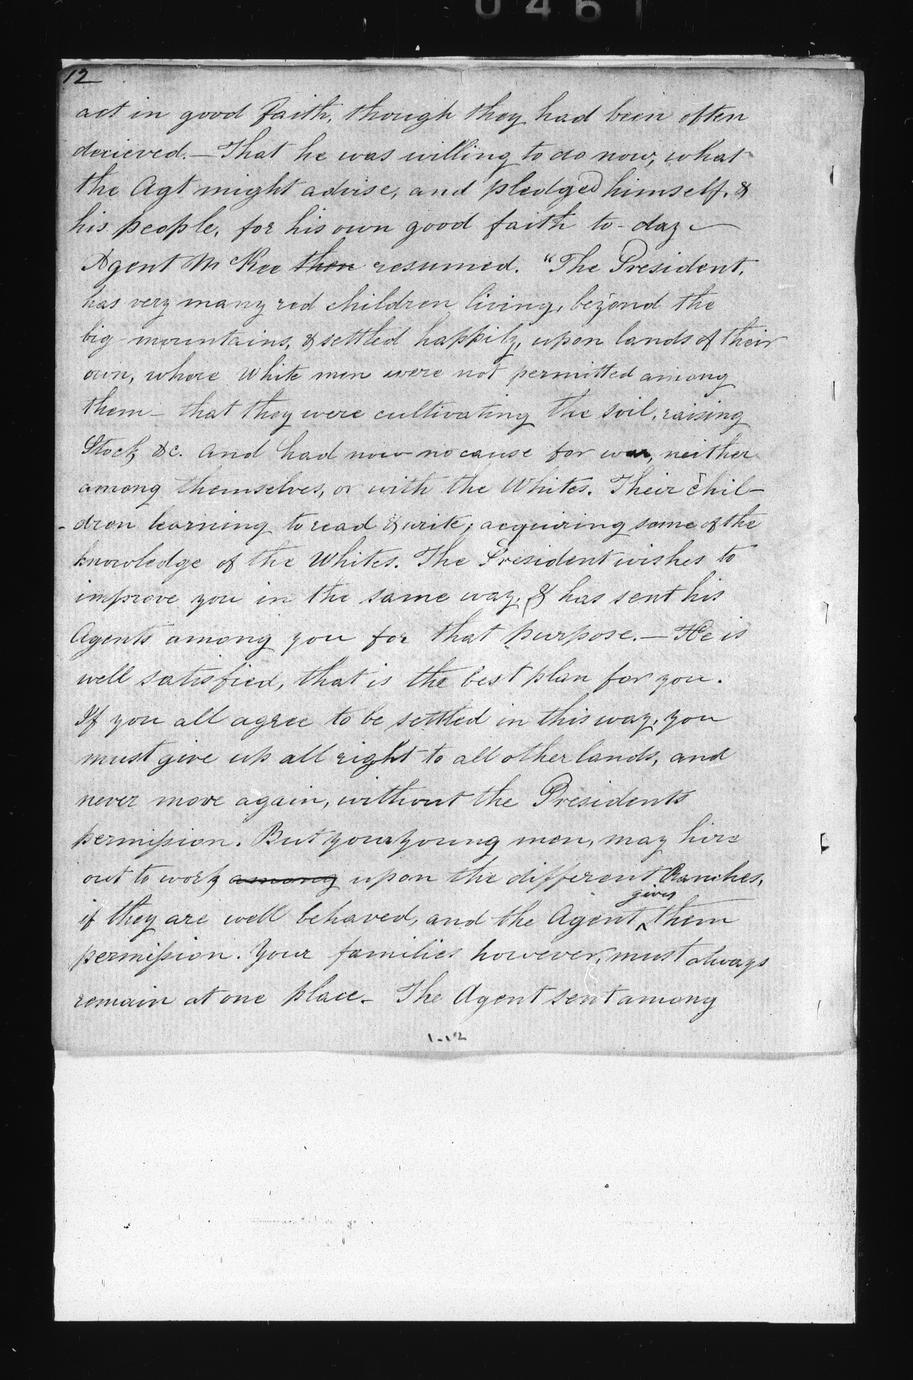 0461
12
act in good faith, though they had been often
decieved. — That he was willing to do now, what
the Agt might advise, and pledged himself, &
his people, for his own good faith to-day —
Agent McKee then resumed. "The President,
has very many red children living, beyond the
big mountains, & settled happily, upon lands of their
own, where White men were not permitted among
them — that they were cultivating the soil, raising
Stock, &c. and had now no cause for war, neither
among themselves, or with the Whites. Their chil-
-dren learning to read & write; acquiring some of the
knowledge of the Whites. The President wishes to
improve you in the same way, & has sent his
Agents among you for that purpose. — He is
well satisfied, that is the best plan for you.
If you all agree to be settled in this way, you
must give up all right to all other lands, and
never move again, without the Presidents
permission. But your young men, may hire
out to work among upon the different Ranches,
gives
if they are well behaved, and the Agent ^ them
permission. Your families however, must always
remain at one place — The Agent sent among
1-12